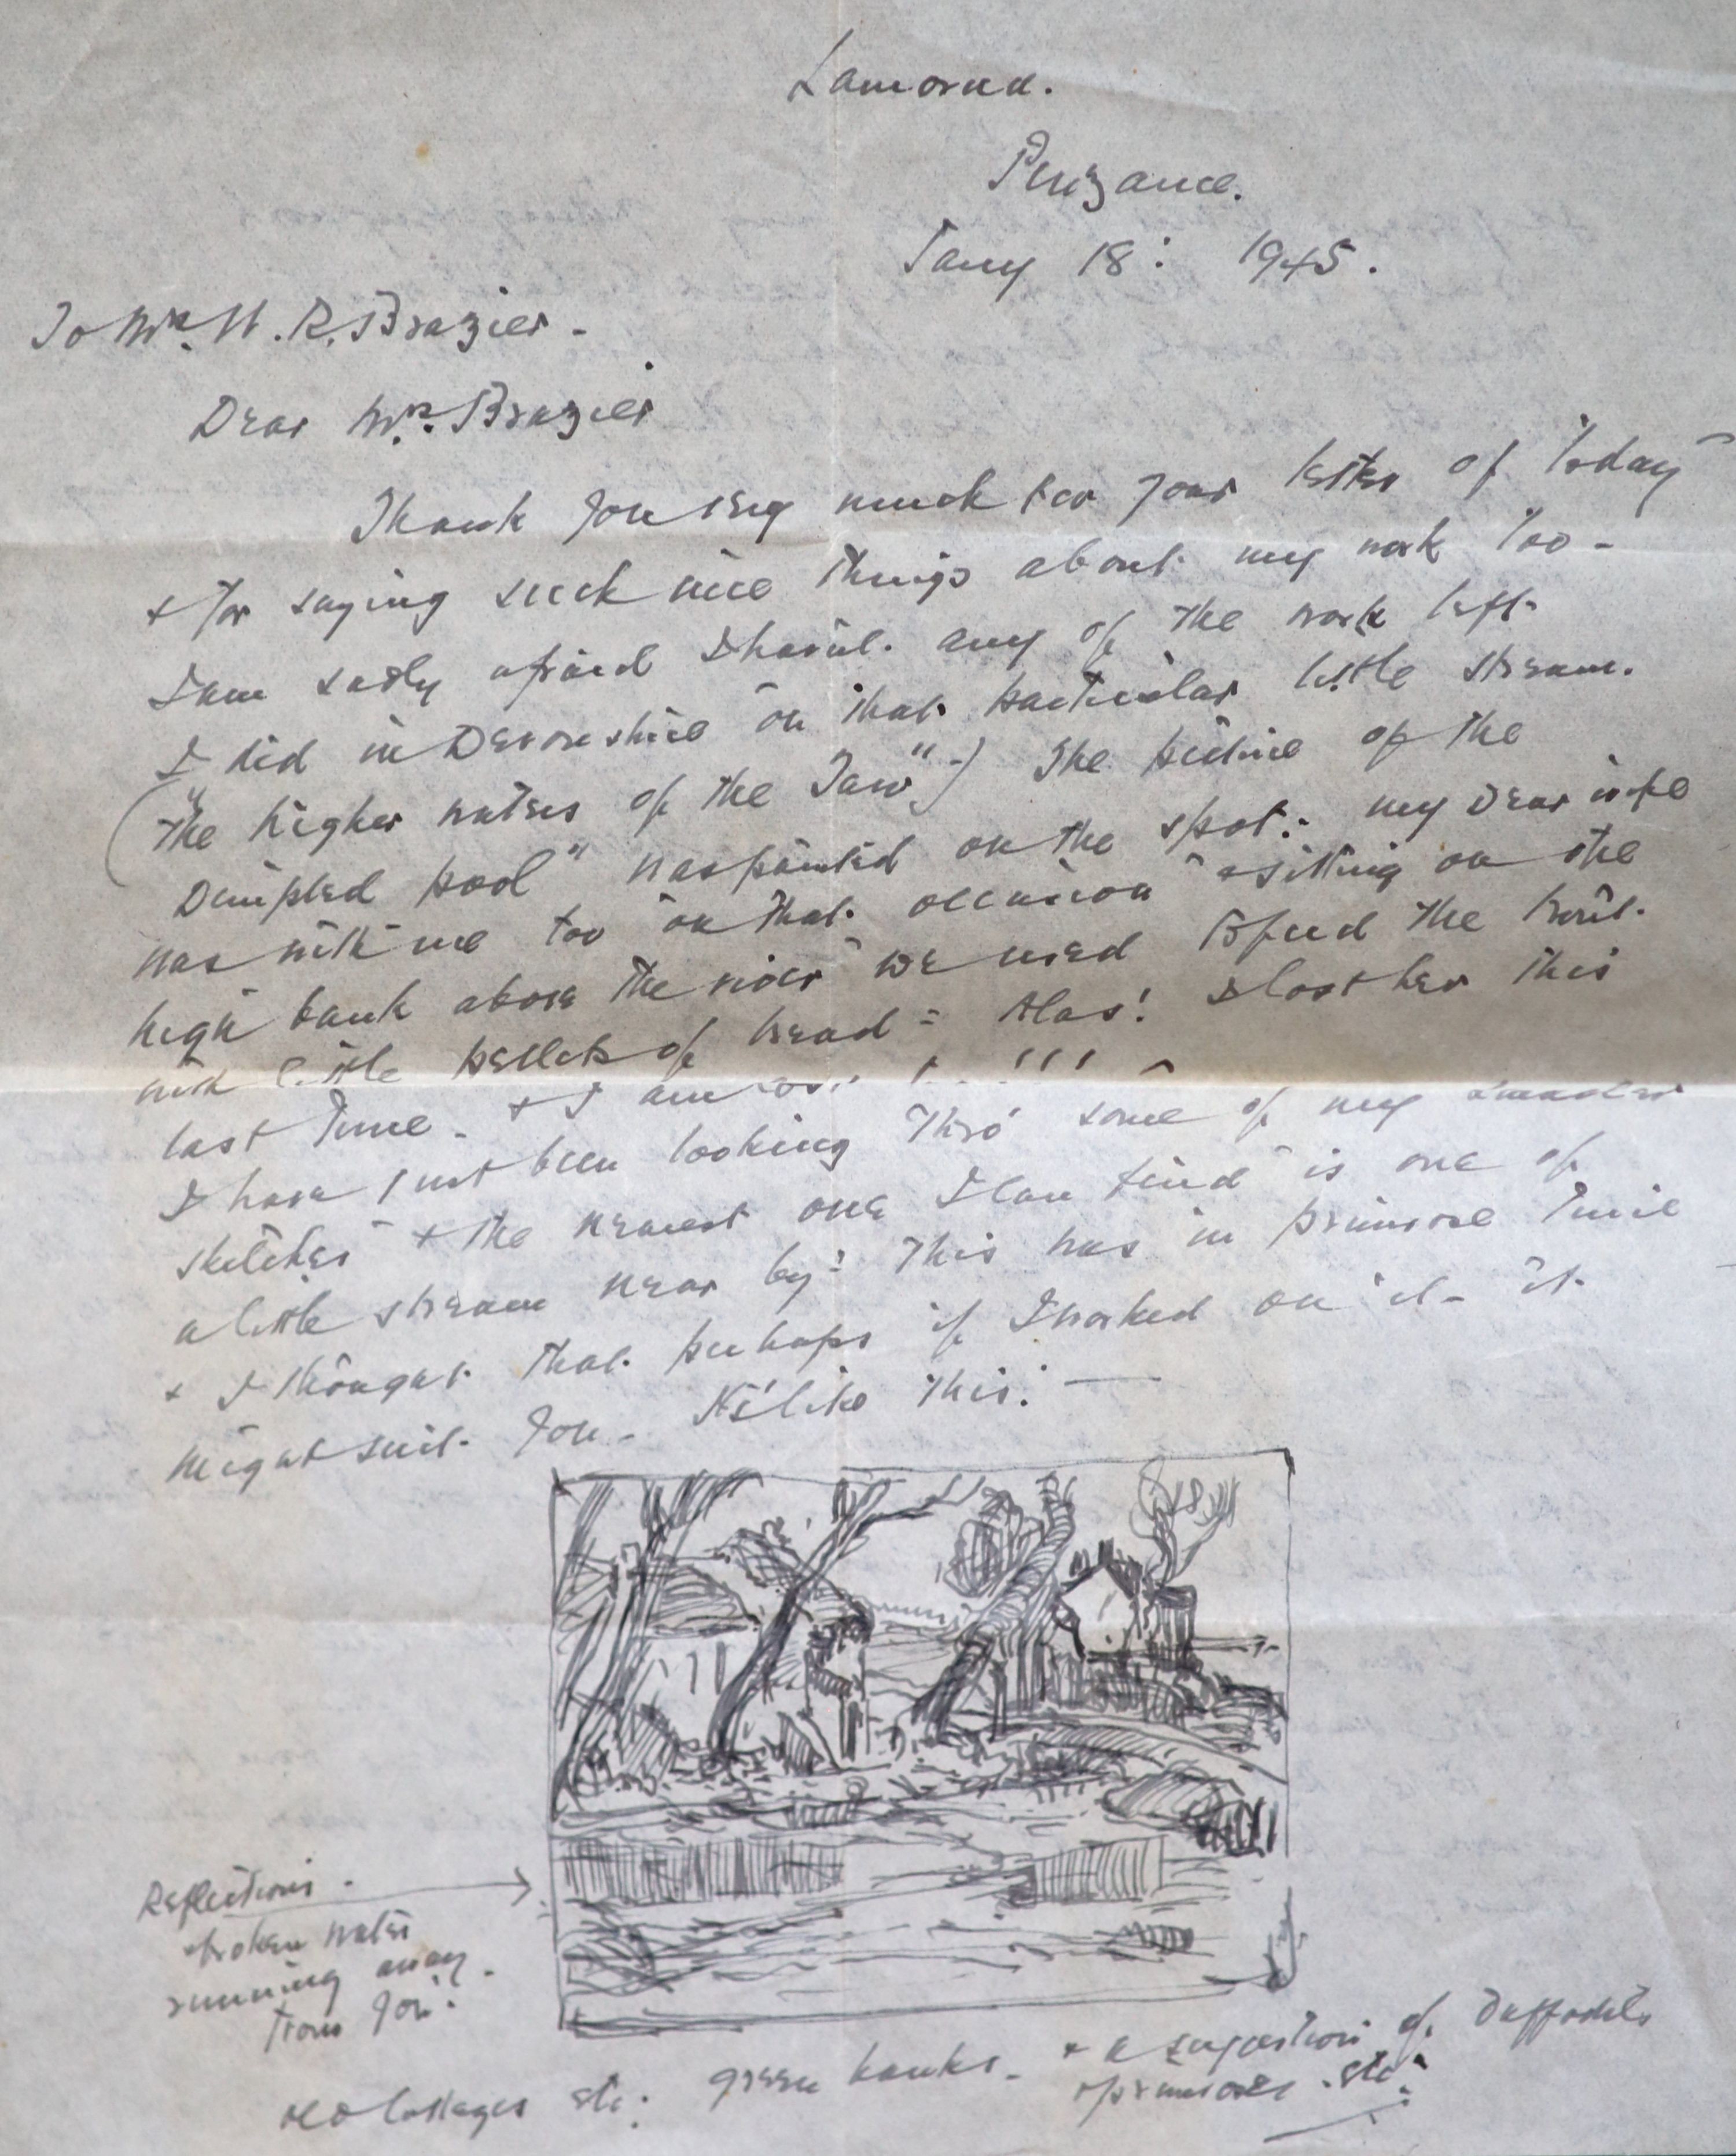 Lamorna.
Penzance.
Jany 18: 1945.
To Mr. W. R. Brazier -
Dear Mr. Brazier
Thank you very much for your letter of today
+ for saying such nice things about my work too -
I am sadly afraid I havnt. any of the work left.
I did in Devonshire on that particular little stream.
("The higher waters of the Taw"-) The picture of the
Dimpled pool" was painted on the spot:- my dear wife
was with me too on that occasion sitting on the
high bank above the river we used to feed the trout.
with little pellets of bread = Alas! I lost her this
last June - + I am lost
I have just been looking thro' some of my smaller
sketches + the nearest one I can find is one of
a little stream near by: This was in primrose time
+ I thought that perhaps if I worked on it - it
might suit you - It's like this:-
Reflections -
broken water
running away
from you.
old cottages etc: green banks - + a suggestion of Daffodils
primroses. etc: